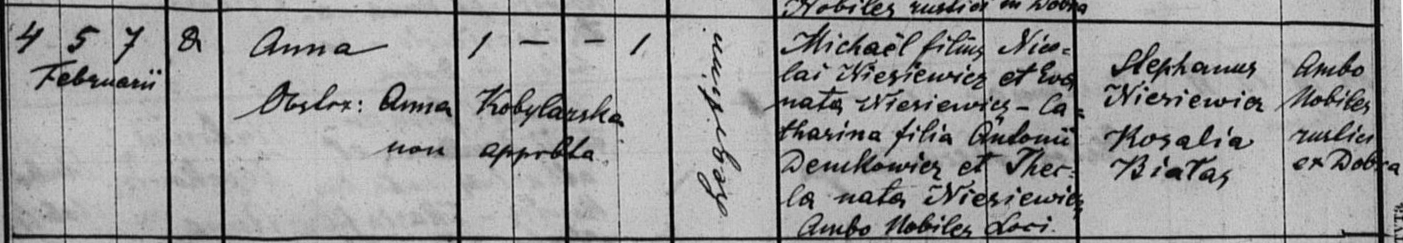 Nobiles rustici ex Dobra
4 5 7 8 Anna 1 - - 1
Februarii
Obstox: Anna Kobylarska
non approbta
Michaël filius Nico-
lai Niesiewicz et Eva
nata Niesiewicz - Ca-
tharina filia Antonii
Demkowicz et Thec-
la nata Niesiewicz
Ambo Nobiles Loci.
Stephanus
Niesiewicz
Rosalia
Białas
Ambo
Nobiles
rustici
ex Dobra